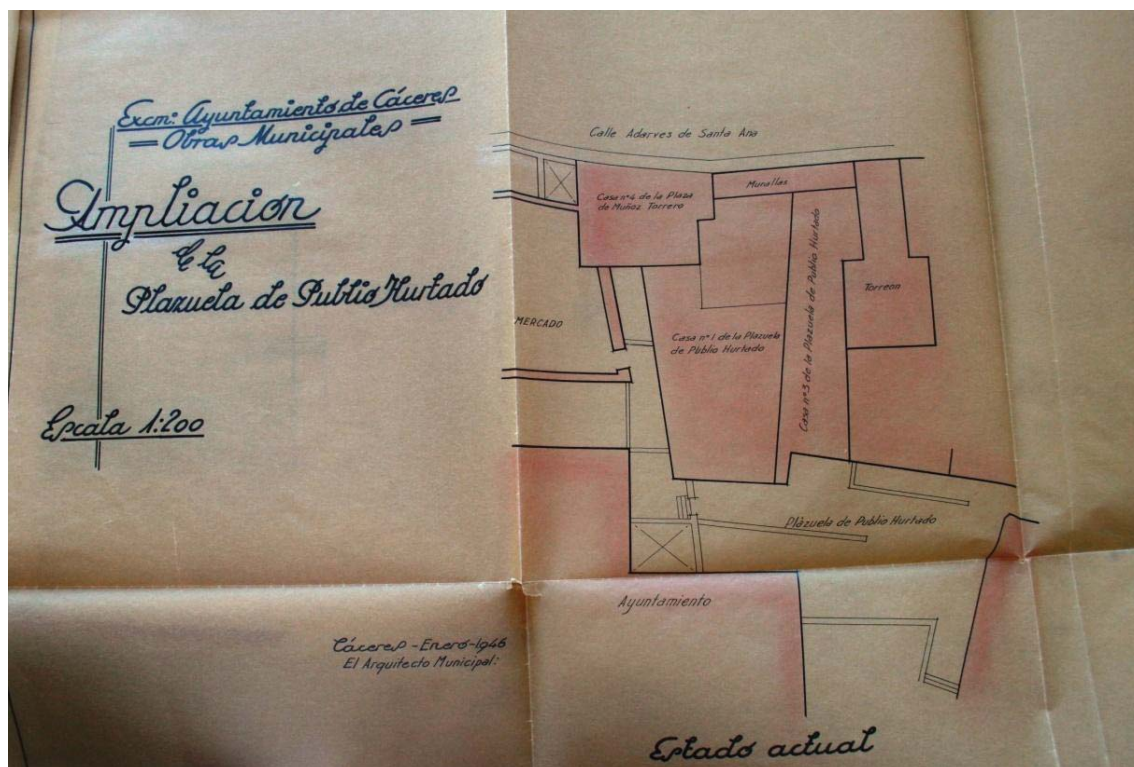 Excmº Ayuntamiento de Cáceres
Obras Municipales
Ampliación
de la
Plazuela de Publio Hurtado
Escala 1:200
Cáceres - Enero - 1946
El Arquitecto Municipal:
Calle Adarves de Santa Ana
Casa nº 4 de la Plaza
de Muñoz Torrero
Murallas
MERCADO
Casa nº 1 de la Plazuela
de Publio Hurtado
Casa nº 3 de la Plazuela de Publio Hurtado
Torreón
Plazuela de Publio Hurtado
Ayuntamiento
Estado actual